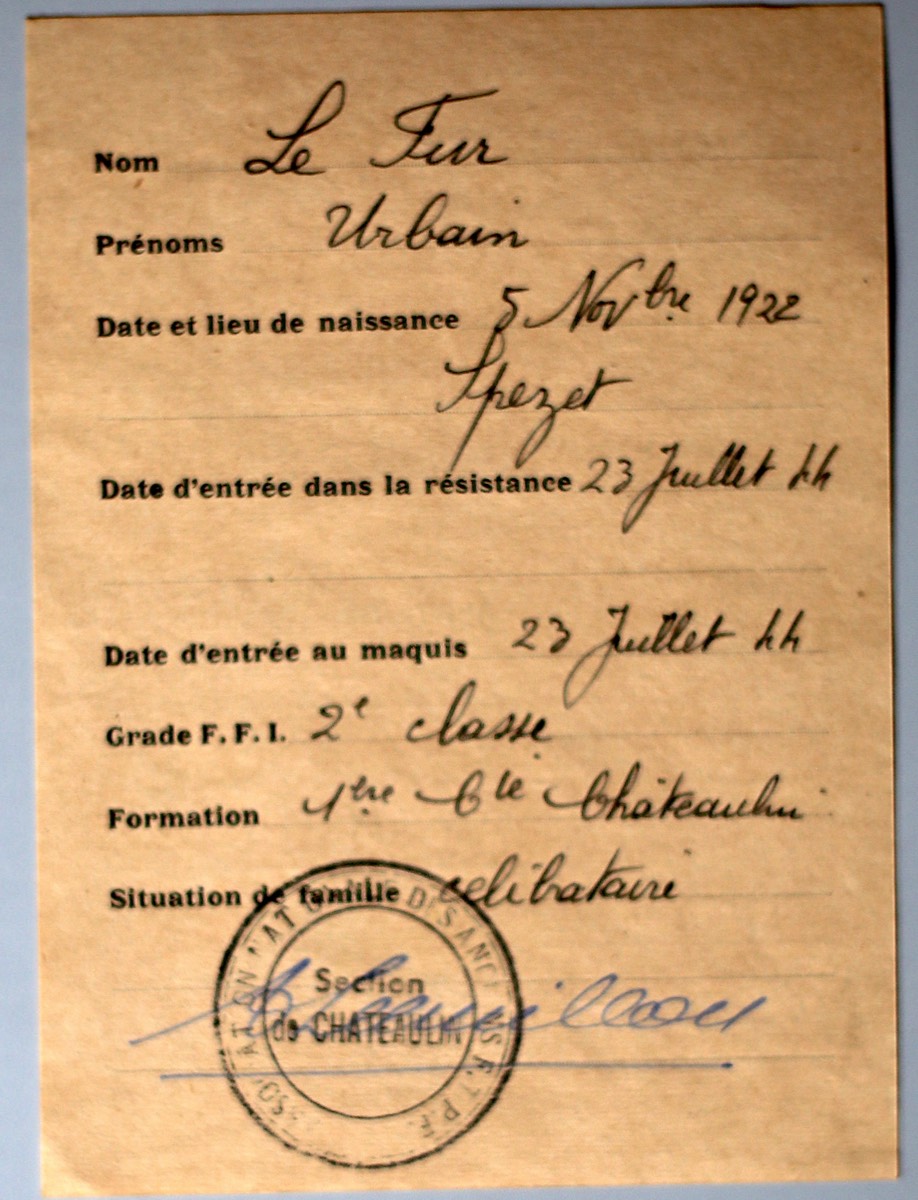 Nom Le Fur
Prénoms Urbain
Date et lieu de naissance 5 Novbre 1922
Spezet
Date d'entrée dans la résistance 23 Juillet 44
Date d'entrée au maquis 23 Juillet 44
Grade F. F. I. 2e classe
Formation 1ère Cie Châteaulin
Situation de famille célibataire
ASSOCIATION NATIONALE DES ANCIENS F.T.P.F.
Section
de CHATEAULIN